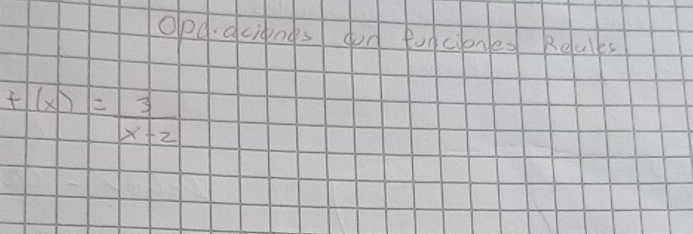 Operaciones con funciones Reales
f(x) = 3
x-2